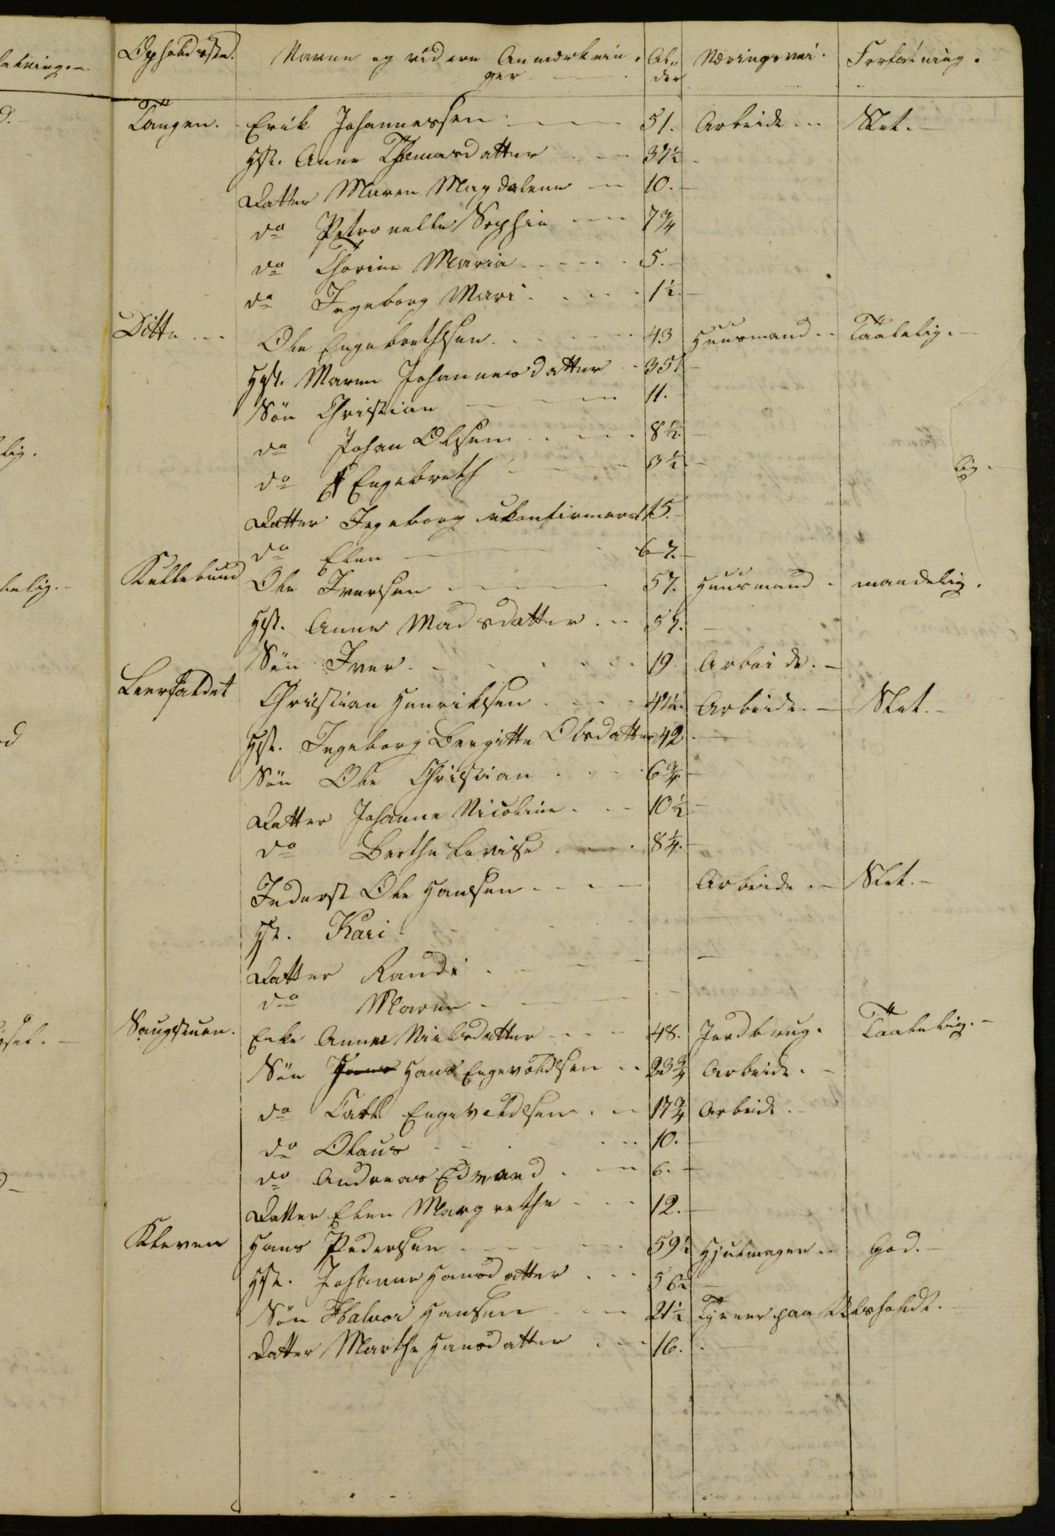 Opholdssted. Navne og videre Anmærknin- Al- Næringsvei. Forfatning.
ger der
Tangen. Erik Johannessen 51. Arbeide Slet.
Hst. Anne Thomasdatter 37½
Datter Maren Magdalene 10.
do Petronelle Sophie 7¾
do Thorine Maria 5.
do Ingeborg Mari 1½
Ditto Ole Engebrethsen 43 Huusmand Taalelig.
Hst. Maren Johannesdatter 35
Søn Christian 11.
do Johan Olsen 8½
do Engebreth 3½
Datter Ingeborg ukonfirmeret 15.
do Elen 6
Ole Iversen 57. Huusmand maadelig.
Hst. Anne Madsdatter
Søn Iver 19. Arbeide.
Leerfaldet Christian Henriksen Arbeide. Slet.
Hst. Ingeborg Bergitte Olsdatter 42
Søn Ole Christian 6¾
Datter Johanne Nicoline 10½
do Berthe Lovise 8¼
Inderst Ole Hansen Arbeide. Slet.
Hst. Kari
Datter Randi
do Maren
Saugstuen. Enke Anne Nielsdatter 48. Jordbrug. Taalelig.
Søn Hans Engevoldsen 23¾ Arbeide.
do Carl Engevoldsen 17¾ Arbeide.
do Olaus 10.
do Andreas Edvard 6.
Datter Elen Margrethe 12.
Kleven Hans Pedersen 59½ Hjulmager God.
Hst. Johanne Hansdatter 56
Søn Halvor Hansen 21½ Tjener paa
Datter Marthe Hansdatter 16.